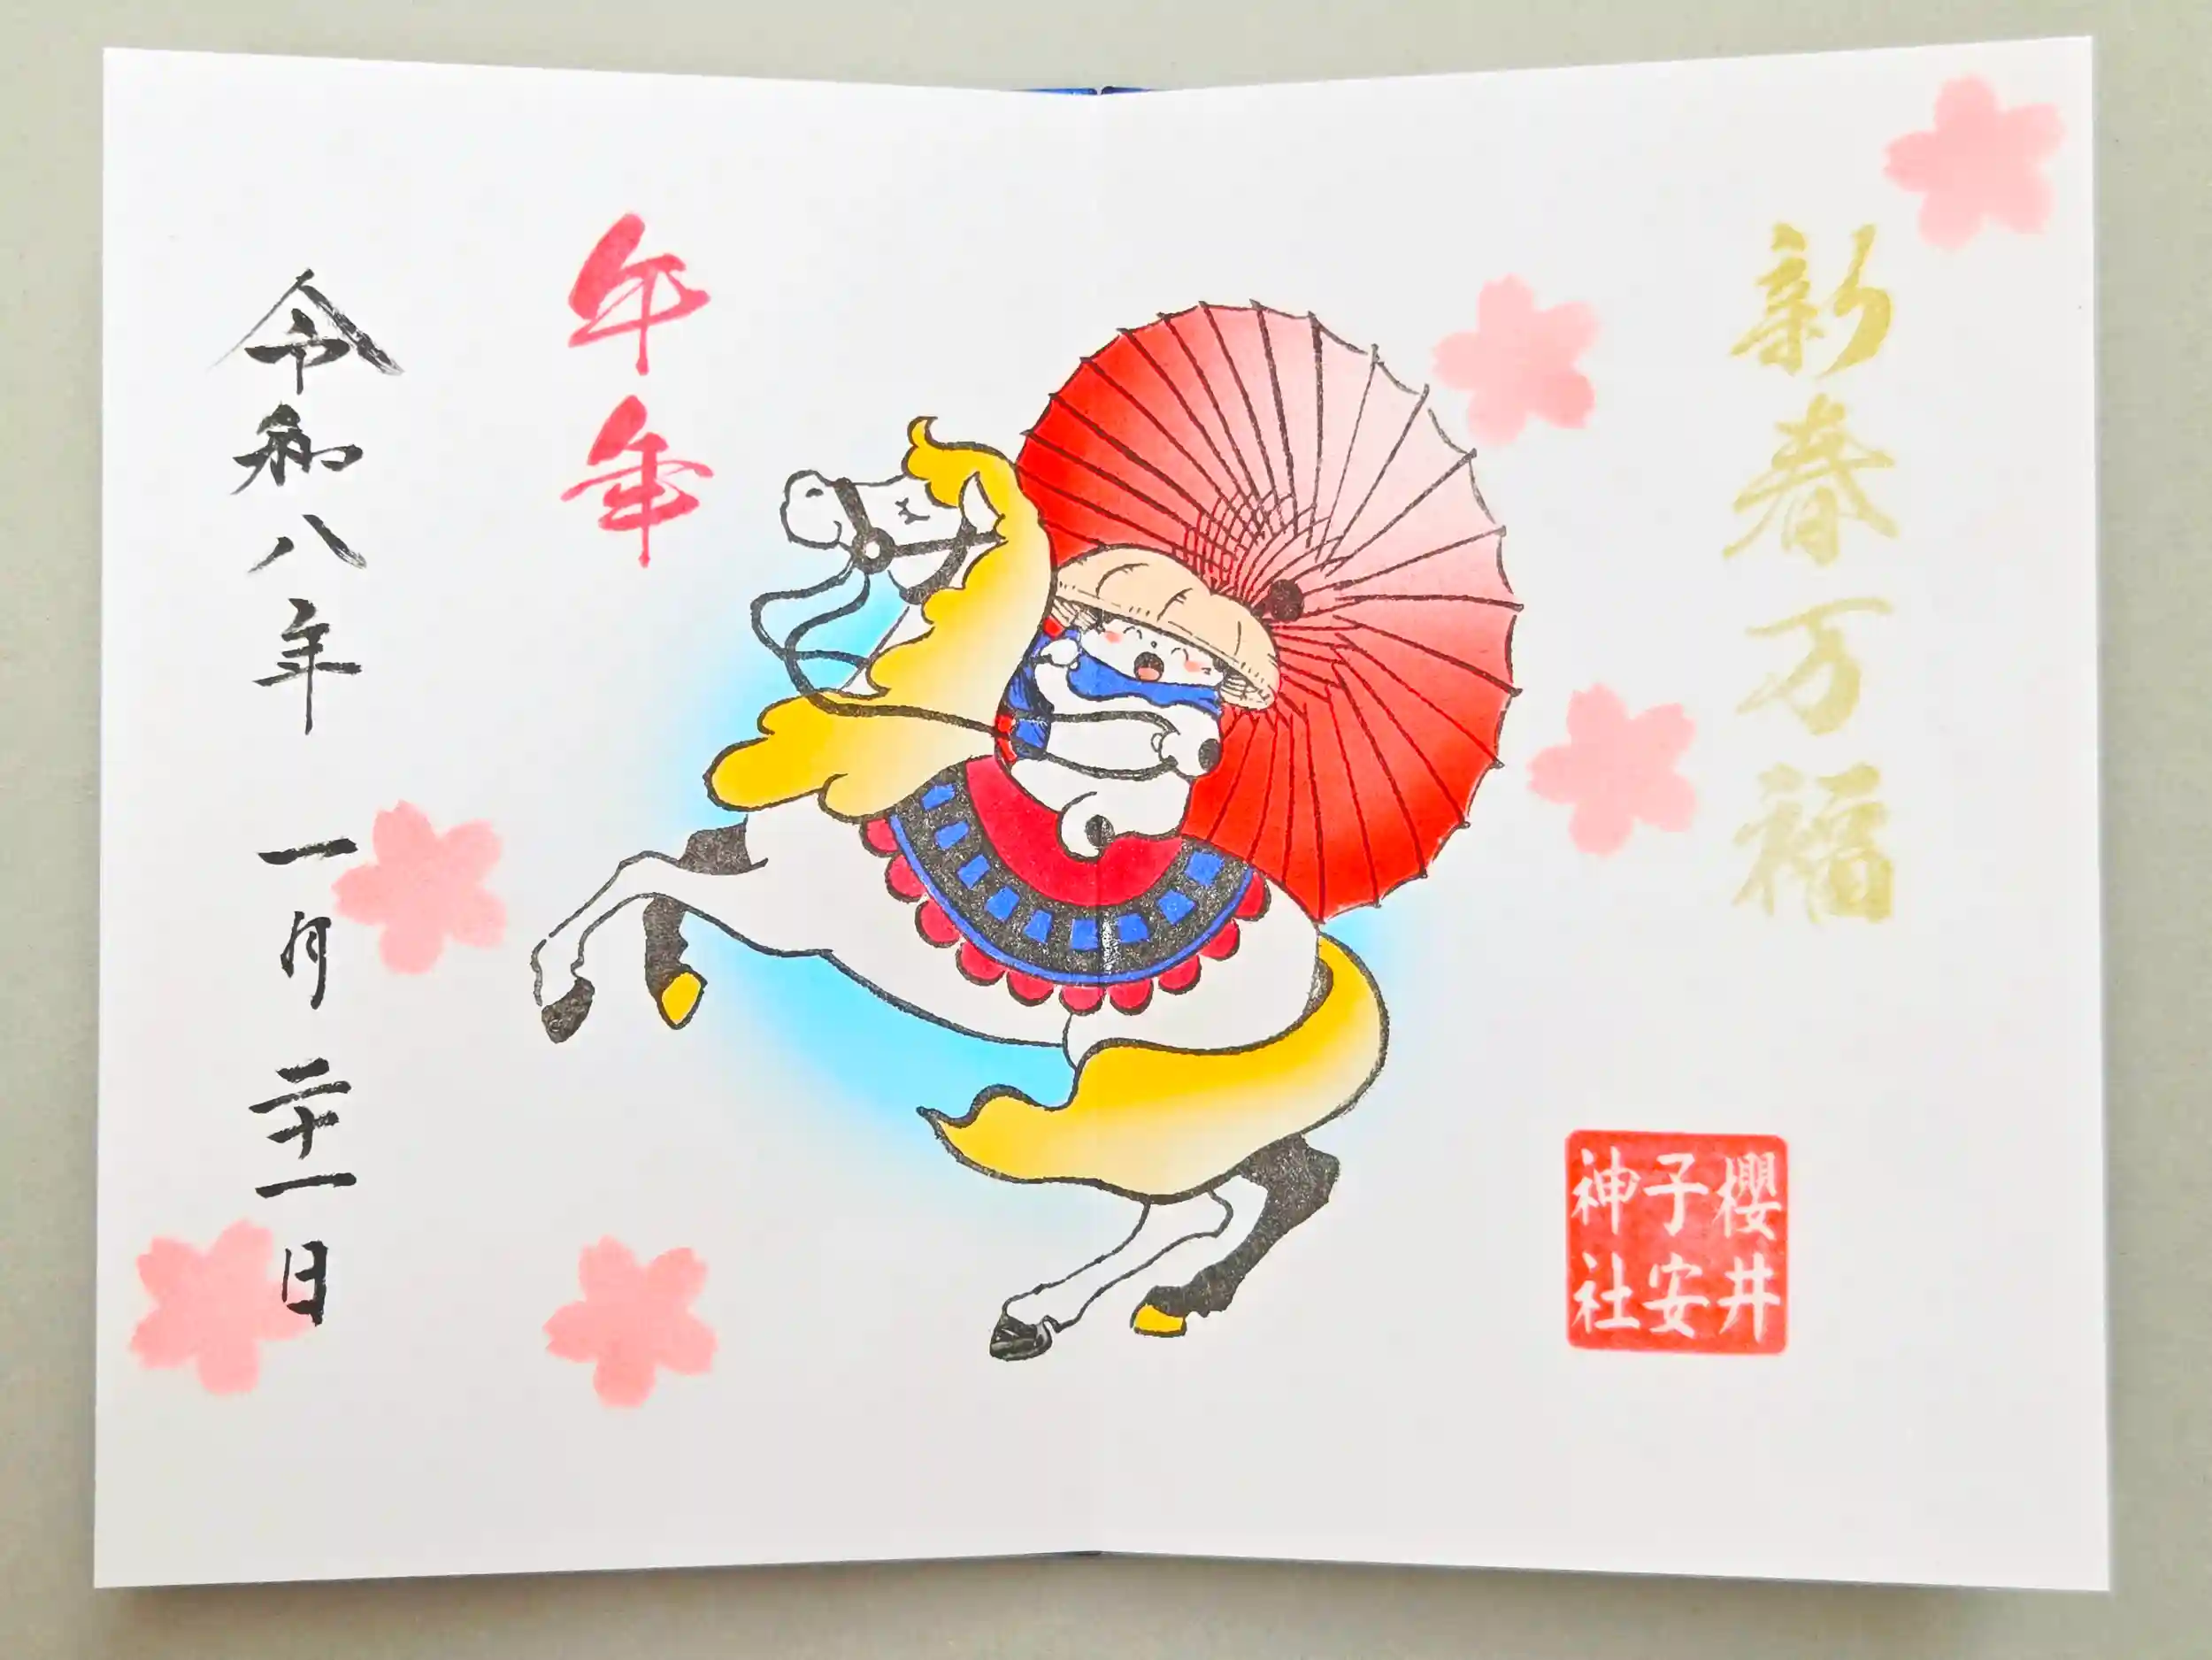 新春万福
櫻井
子安
神社
午年
令和八年 一月 二十一日